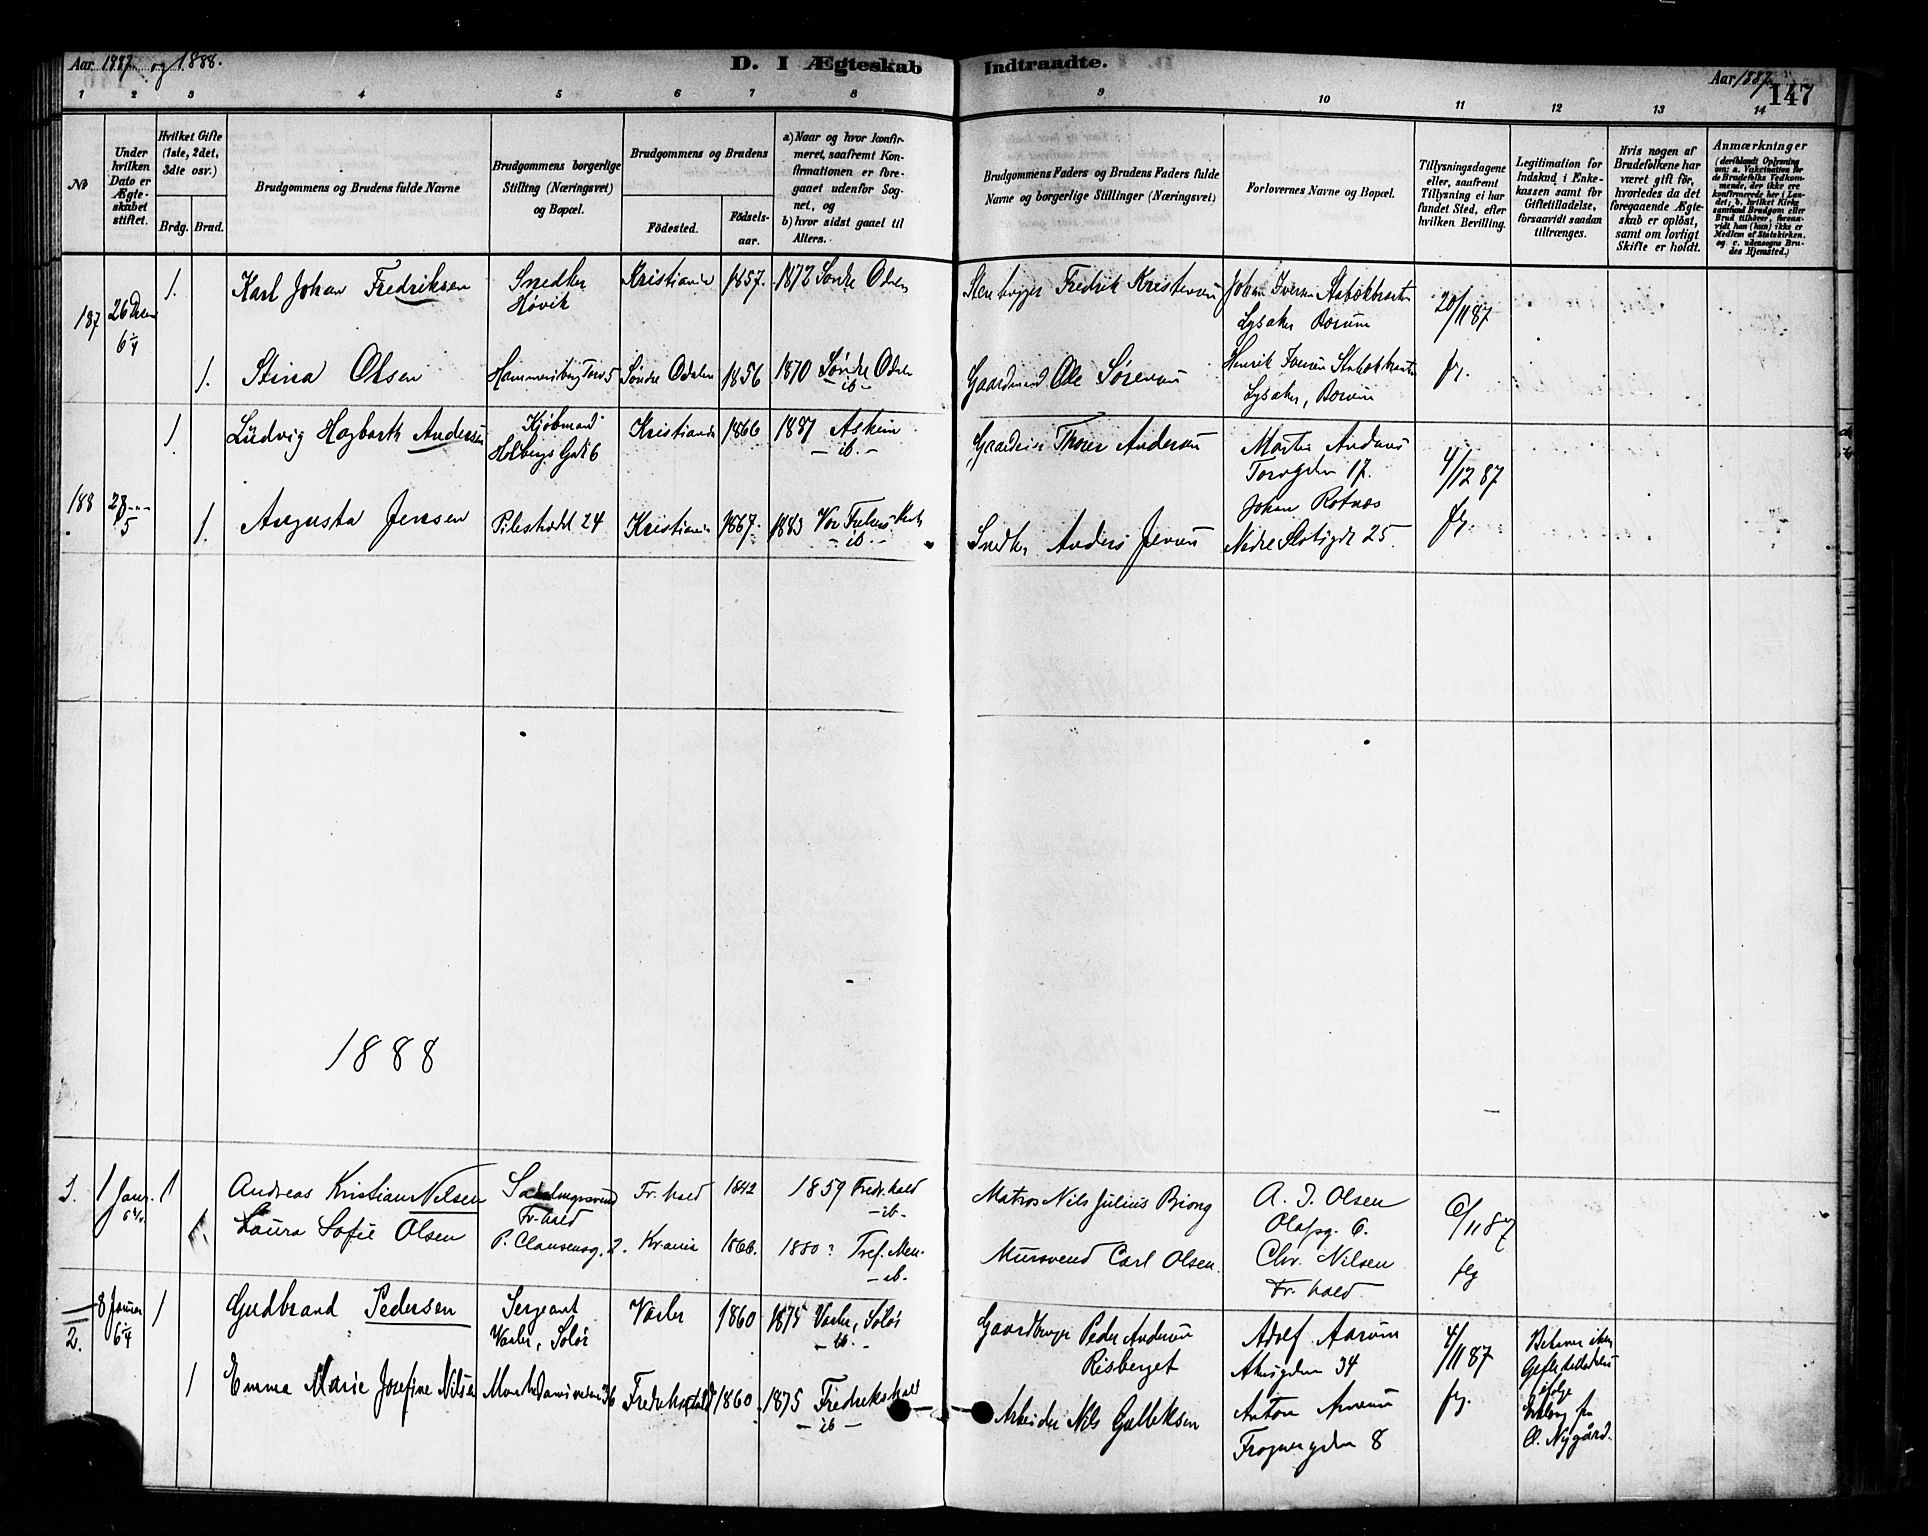 Aar 1887 og 1888.
D. I Ægteskab Indtraadte.
Aar 1887
147
1 2 3 4 5 6 7 8 9 10 11 12 13 14
No
Under hvilken Dato er Ægteskabet stiftet.
Hvilket Gifte (1ste, 2det, 3die osv.)
Brdg. Brud.
Brudgommens og Brudens fulde Navne
Brudgommens borgerlige Stilling (Næringsvei) og Bopæl.
Brudgommens og Brudens
Födested. Födsels-aar.
a) Naar og hvor konfirmeret, saafremt Konfirmationen er foregaaet udenfor Sognet, og
b) hvor sidst gaaet til Alters.
Brudgommens Faders og Brudens Faders fulde Navne og borgerlige Stillinger (Næringsvei)
Forlovernes Navne og Bopæl.
Tillysningsdagene eller, saafremt Tillysning ei har fundet Sted, efter hvilken Bevilling.
Legitimation for Indskud i Enkekassen samt for Giftetilladelse, forsaavidt saadan tiltrænges.
Hvis nogen af Brudefolkene har været gift för, hvorledes da det foregaaende Ægteskab er oplöst, samt om lovligt Skifte er holdt.
Anmærkninger
(deriblandt Oplysning om: a. Vakcination for de Brudefolks Vedkommende, der ikke ere konfirmerede her i Landet; b. hvilket Kirkesamfund Brudgom eller Brud tilhører, forsaavidt han (hun) ikke er Medlem af Statskirken, og c. udensogns Brudes Hjemsted.)
187 26 6¼ 1. Karl Johan Fredriksen Snedker Høvik Kristiania 1857. 1872 Søndre Odalen Fredrik Kristensen Johan Iversen Lysaker Bærum 20/11 87
1. Stina Olsen Hammersborg Torv 5 Søndre Odalen 1856 1870 Søndre Odalen -ib- Gaardmand Ole Sørensen Henrik Iversen Lysaker, Bærum fg.
188 28 5 1. Ludvig Hagbarth Andersen Kjøbmand Holbergs Gade 6 Kristiania 1866 1881 Askim -ib.- Andersen Martin Andersen Torvgden 17. 4/12 87
1. Augusta Jensen Pilestrædet 24 Kristiania 1867. 1883 Vor Frelsers Kirke -ib.- Snedker Anders Jensen Johan Rotnæs Nedre Slotsgde 25. fg.
1888
1. 1 Janr. 1 Andreas Kristian Nilsen Fr.hald Fr.hald 1842 1859 Fredr.hald -ib- Matros Nils Julius Biong A. J. Olsen Olafsg. 6. 6/11 87
1. Laura Sofie Olsen P. Clausensg. 2. Kr.ania 1866. 1880? Tref. Men. -ib- Mursvend Carl Olsen. Chr. Nilsen Fr.hald fg
2. 8 Januar 6¼ 1 Gudbrand Pedersen Sergeant Vaaler, Solør Vaaler 1860 1875 Vaaler, Solør -ib- Gaardbruger Peder Andersen Risberget Adolf Aarum Akersgden 34 4/11 87
1 Emma Marie Josefine Nilsen Fredrikshald 1860. 1875 Fredrikshald -ib- Arbeider Nils Gulliksen Anton Frognergden 8 fg. Behøver ikke ifølge fra O. Nygård.